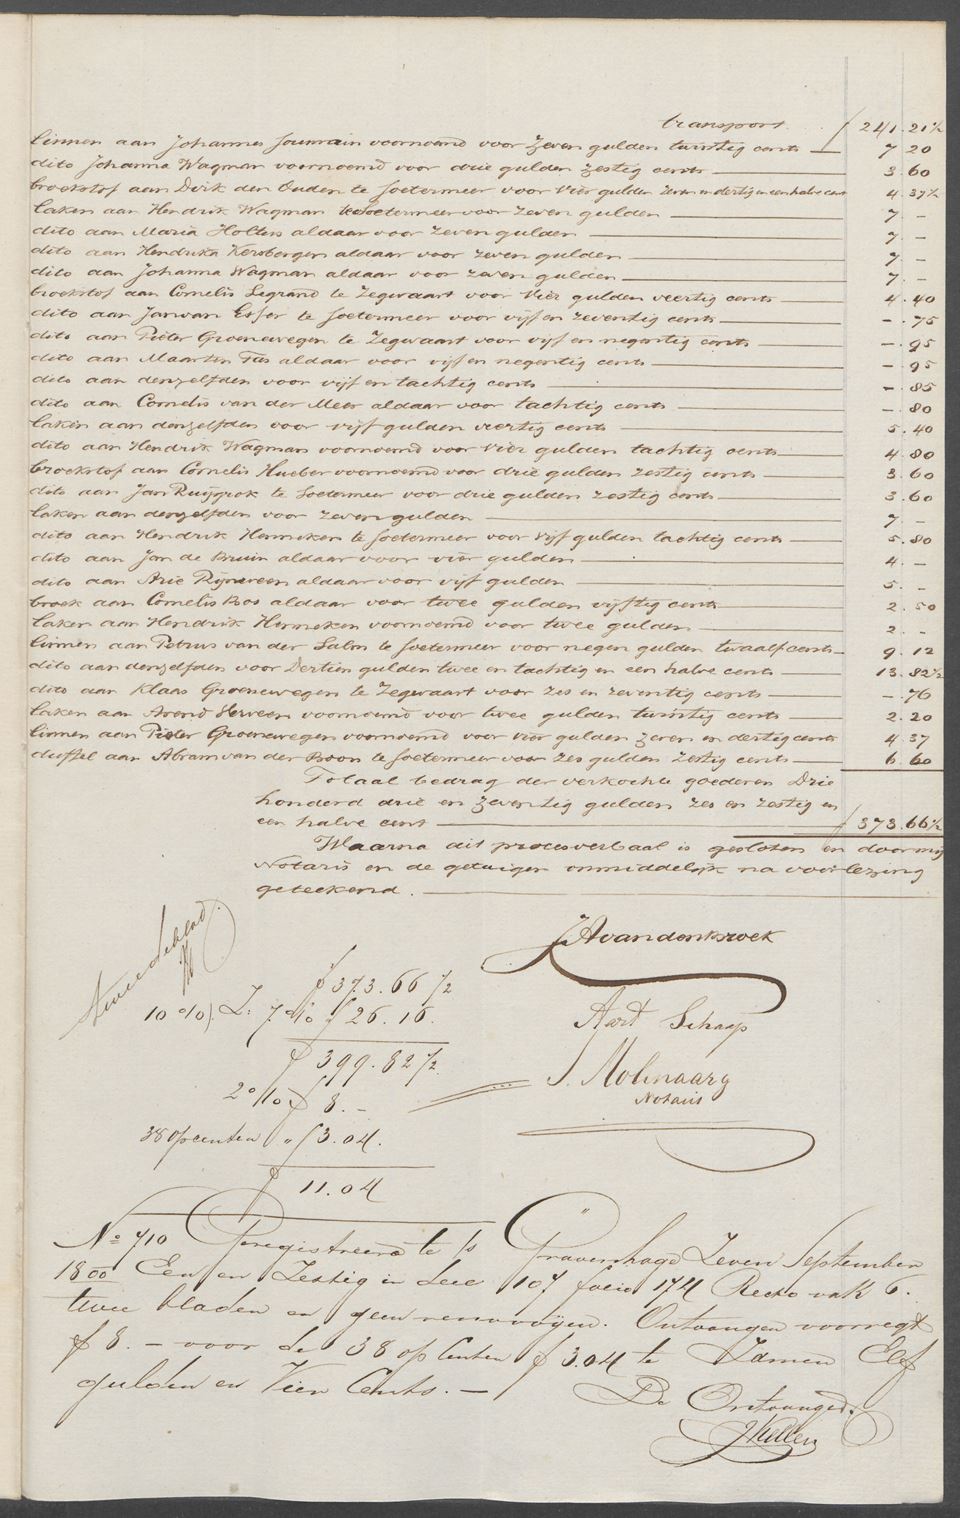 transport f 241.21½
linnen aan Johannes Joumain voornoemd voor zeven gulden twintig cents 7.20
dito Johanna Wagman voornoemd voor drie gulden zestig cents 3.60
broekstof aan Dirk den Ouden te Soetermeer voor vier gulden zeven en dertig en een halve cent 4.37½
laken aan Hendrik Wagman te Soetermeer voor zeven gulden 7.-
dito aan Maria Holters aldaar voor zeven gulden 7.-
dito aan Hendrika Kersbergen aldaar voor zeven gulden 7.-
dito aan Johanna Wagman aldaar voor zeven gulden 7.-
broekstof aan Cornelis Segrand te Zegwaart voor vier gulden veertig cents 4.40
dito aan Jan van Esser te Soetermeer voor vijf en zeventig cents -.75
dito aan Pieter Groenewegen te Zegwaart voor vijf en negentig cents -.95
dito aan Maarten aldaar voor vijf en negentig cents -.95
dito aan denzelfden voor vijf en tachtig cents -.85
dito aan Cornelis van der Meer aldaar voor tachtig cents -.80
laken aan denzelfden voor vijf gulden veertig cents 5.40
dito aan Hendrik Wagman voornoemd voor vier gulden tachtig cents 4.80
broekstof aan Cornelis Hueber voornoemd voor drie gulden zestig cents 3.60
dito aan Jan Ruijgrok te Soetermeer voor drie gulden zestig cents 3.60
laken aan denzelfden voor zeven gulden 7.-
dito aan Hendrik Henneken te Soetermeer voor vijf gulden tachtig cents 5.80
dito aan Jan de Bruin aldaar voor vier gulden 4.-
dito aan Arie Rijneveen aldaar voor vijf gulden 5.-
broek aan Cornelis Bos aldaar voor twee gulden vijftig cents 2.50
laken aan Hendrik Henneken voornoemd voor twee gulden 2.-
linnen aan Petrus van der Salm te Soetermeer voor negen gulden twaalf cents 9.12
dito aan denzelfden voor Dertien gulden twee en tachtig en een halve cent 13.82½
dito aan Klaas Groenewegen te Zegwaart voor zes en zeventig cents -.76
laken aan Arend Herveen voornoemd voor twee gulden twintig cents 2.20
linnen aan Pieter Groenewegen voornoemd voor vier gulden zeven en dertig cents 4.37
duffel aan Abram van der Boon te Soetermeer voor zes gulden zestig cents 6.60
Totaal bedrag der verkochte goederen Drie
honderd drie en zeventig gulden zes en zestig en
een halve cent f 373.66½
Waarna dit procesverbaal is gesloten en door mij
Notaris en de getuigen onmiddelijk na voorlezing
geteekend.
JA van den Broek
Tweede blad
f 373.66½
10 %) 7 % f 26.16
Aart Schaap
f 399.82½
J. Molenaar
Notaris
2 % f 8.-
38 opcenten " f 3.04.
f 11.04
No 710 Geregistreerd te 's Gravenhage Zeven September
1800 Een en Zestig in deel 107 folio 174 Recto vak 6.
twee bladen en geen renvooijen. Ontvangen voor regt
f 8.- voor de 38 op Centen f 3.04 te Zamen Elf
gulden en Vier Cents. -
De Ontvanger.